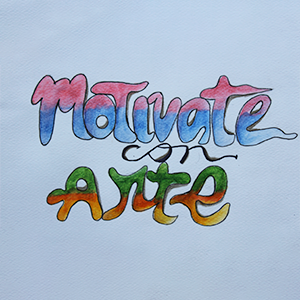 Motivate
con
Arte